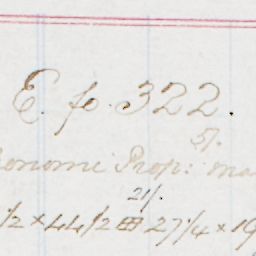 E. fo. 322.
5/.
onomic Prop: ma
21/.
1/2 x 44 1/2 27 1/4 x 19